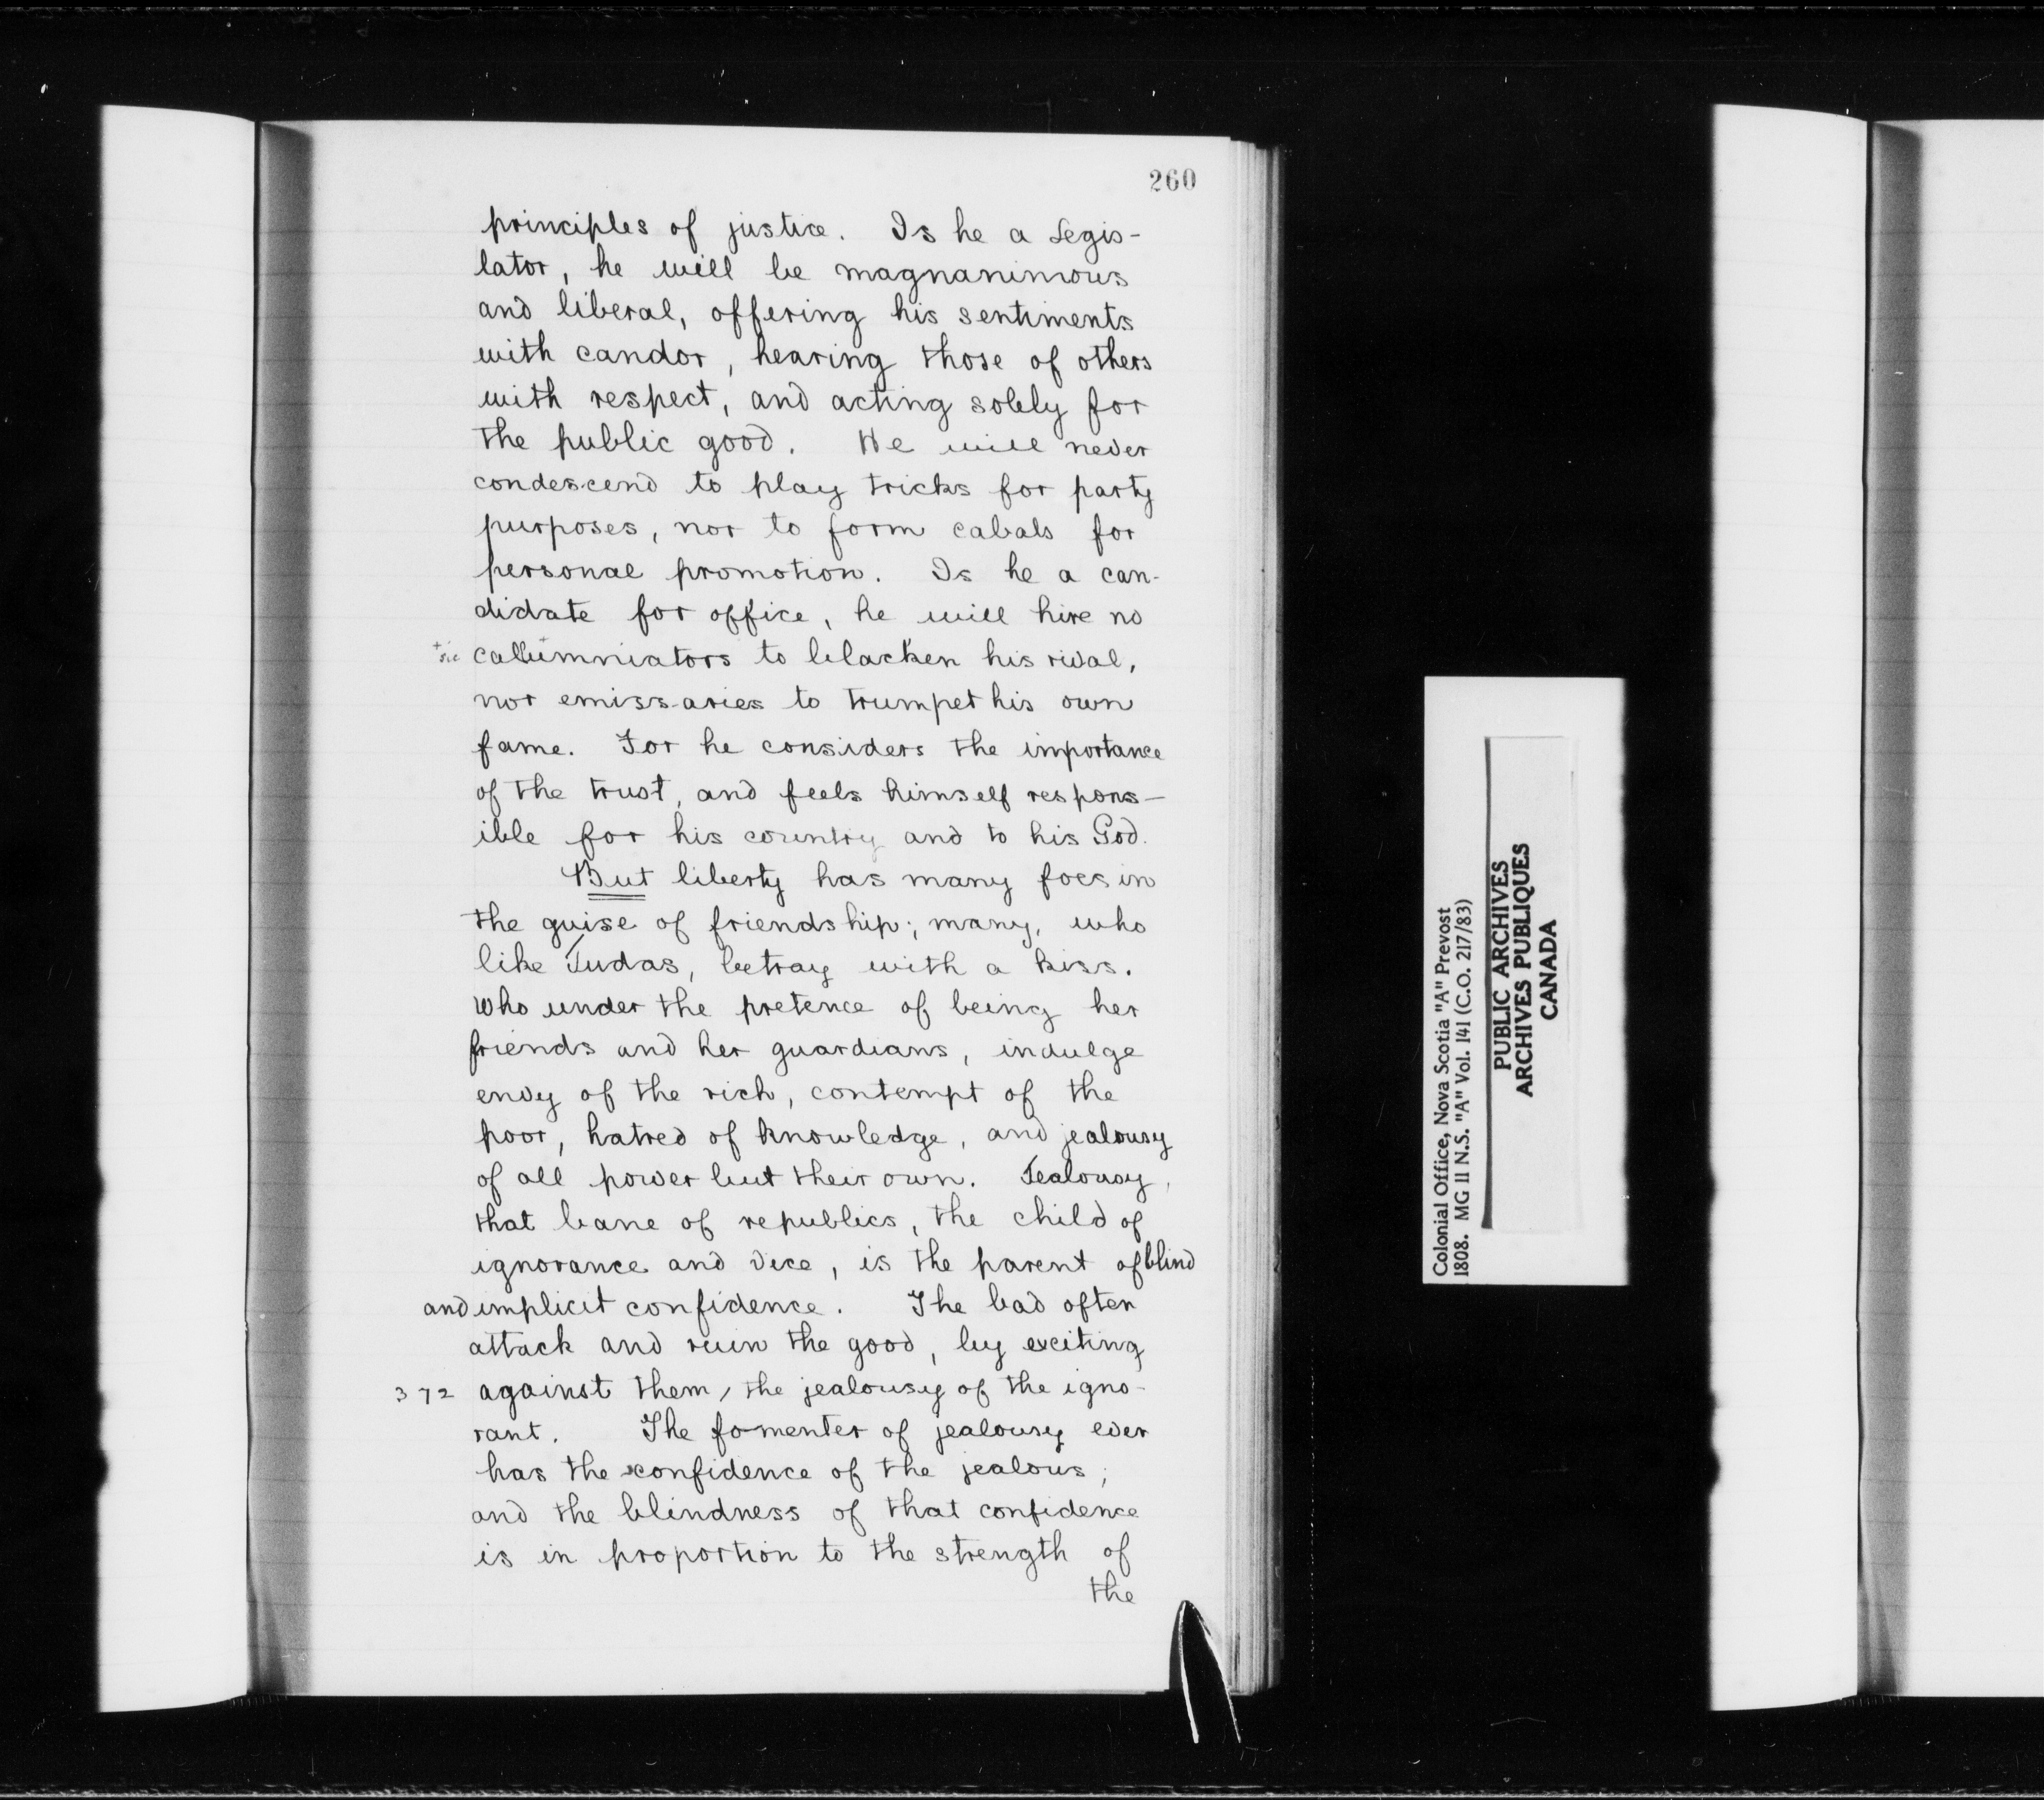 260
principles of justice. Is he a Legis-
lator, he will be magnanimous
and liberal, offering his sentiments
with candor, hearing those of others
with respect, and acting solely for
the public good. He will never
condescend to play tricks for party
purposes, nor to form cabals for
personal promotion. Is he a can-
didate for office, he will hire no
+ sic callumniators to blacken his rival,
nor emissaries to trumpet his own
fame. For he considers the importance
of the trust, and feels himself respons-
ible for his country and to his God.
But liberty has many foes in
the guise of friendship; many, who
like Judas, betray with a kiss.
Who under the pretence of being her
friends and her guardians, indulge
envy of the rich, contempt of the
poor, hatred of knowledge, and jealousy
of all power but their own. Jealousy,
that bane of republics, the child of
ignorance and vice, is the parent of blind
and implicit confidence. The bad often
attack and ruin the good, by exciting
372 against them, the jealousy of the igno-
rant. The fomenter of jealousy ever
has the confidence of the jealous;
and the blindness of that confidence
is in proportion to the strength of
the
Colonial Office, Nova Scotia "A" Prevost
1808. MG 11 N.S. "A" Vol. 141 (C.O. 217/83)
PUBLIC ARCHIVES
ARCHIVES PUBLIQUES
CANADA